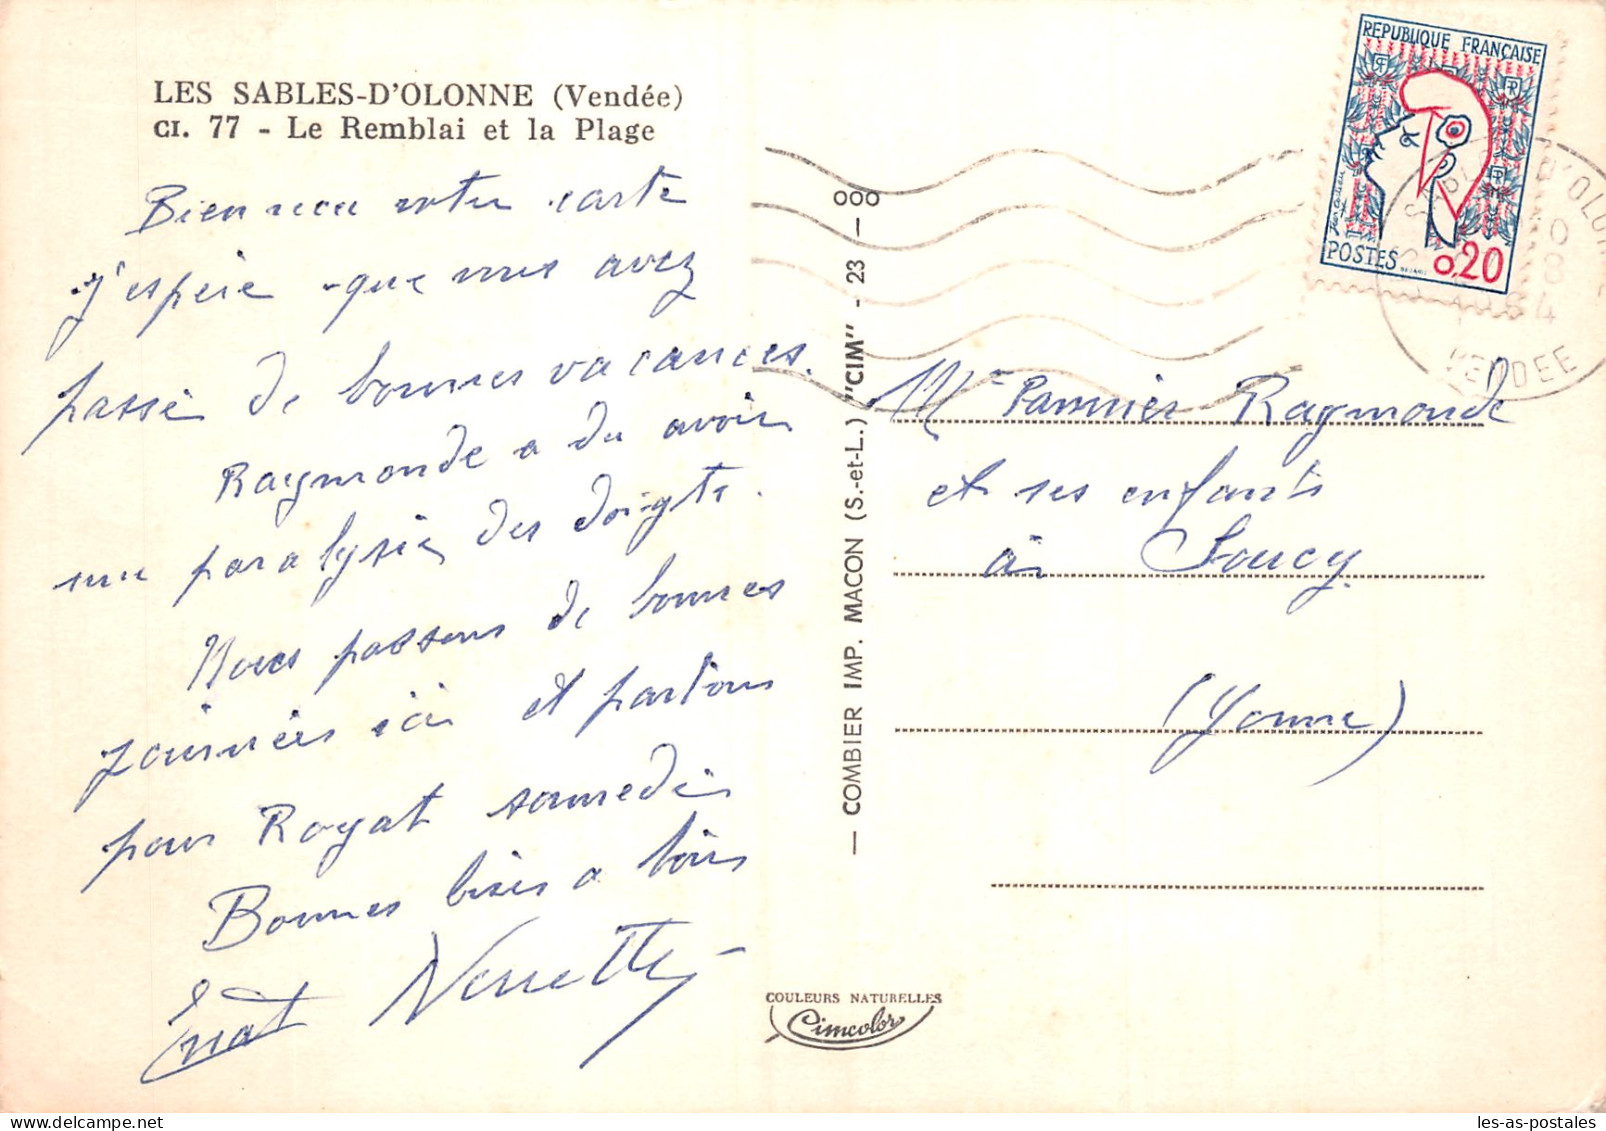 LES SABLES-D'OLONNE (Vendée)
CI. 77 - Le Remblai et la Plage
Bien reçu votre carte
j'espère que vous avez
passé de bonnes vacances.
Raymonde a du avoir
une paralysie des doigts.
Nous passons de bonnes
journées ici et partons
pour Royat samedi
Bonnes bises a tous
Nenette
— COMBIER IMP. MACON (S.-et-L.) "CIM" - 23 — OOO
COULEURS NATURELLES
Cimcolor
REPUBLIQUE FRANÇAISE
RF
Jean Cocteau
POSTES 0,20
SABLES D'OLONNE
VENDEE
Me Pannier Raymonde
et ses enfants
à Soucy
(Yonne)
les-as-postales